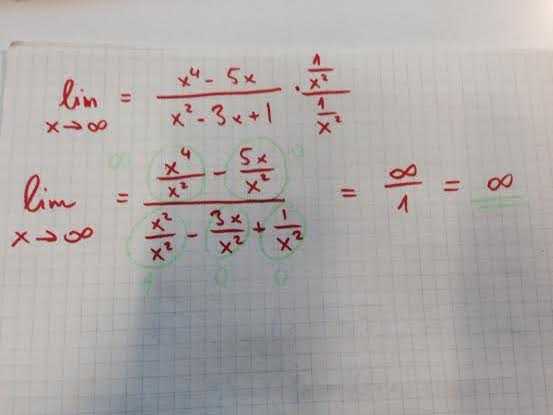 lim x→∞ = (x⁴ - 5x)/(x² - 3x + 1) · (1/x²)/(1/x²)
lim x→∞ = (x⁴/x² - 5x/x²)/(x²/x² - 3x/x² + 1/x²) = ∞/1 = ∞
∞ 0
1 0 0